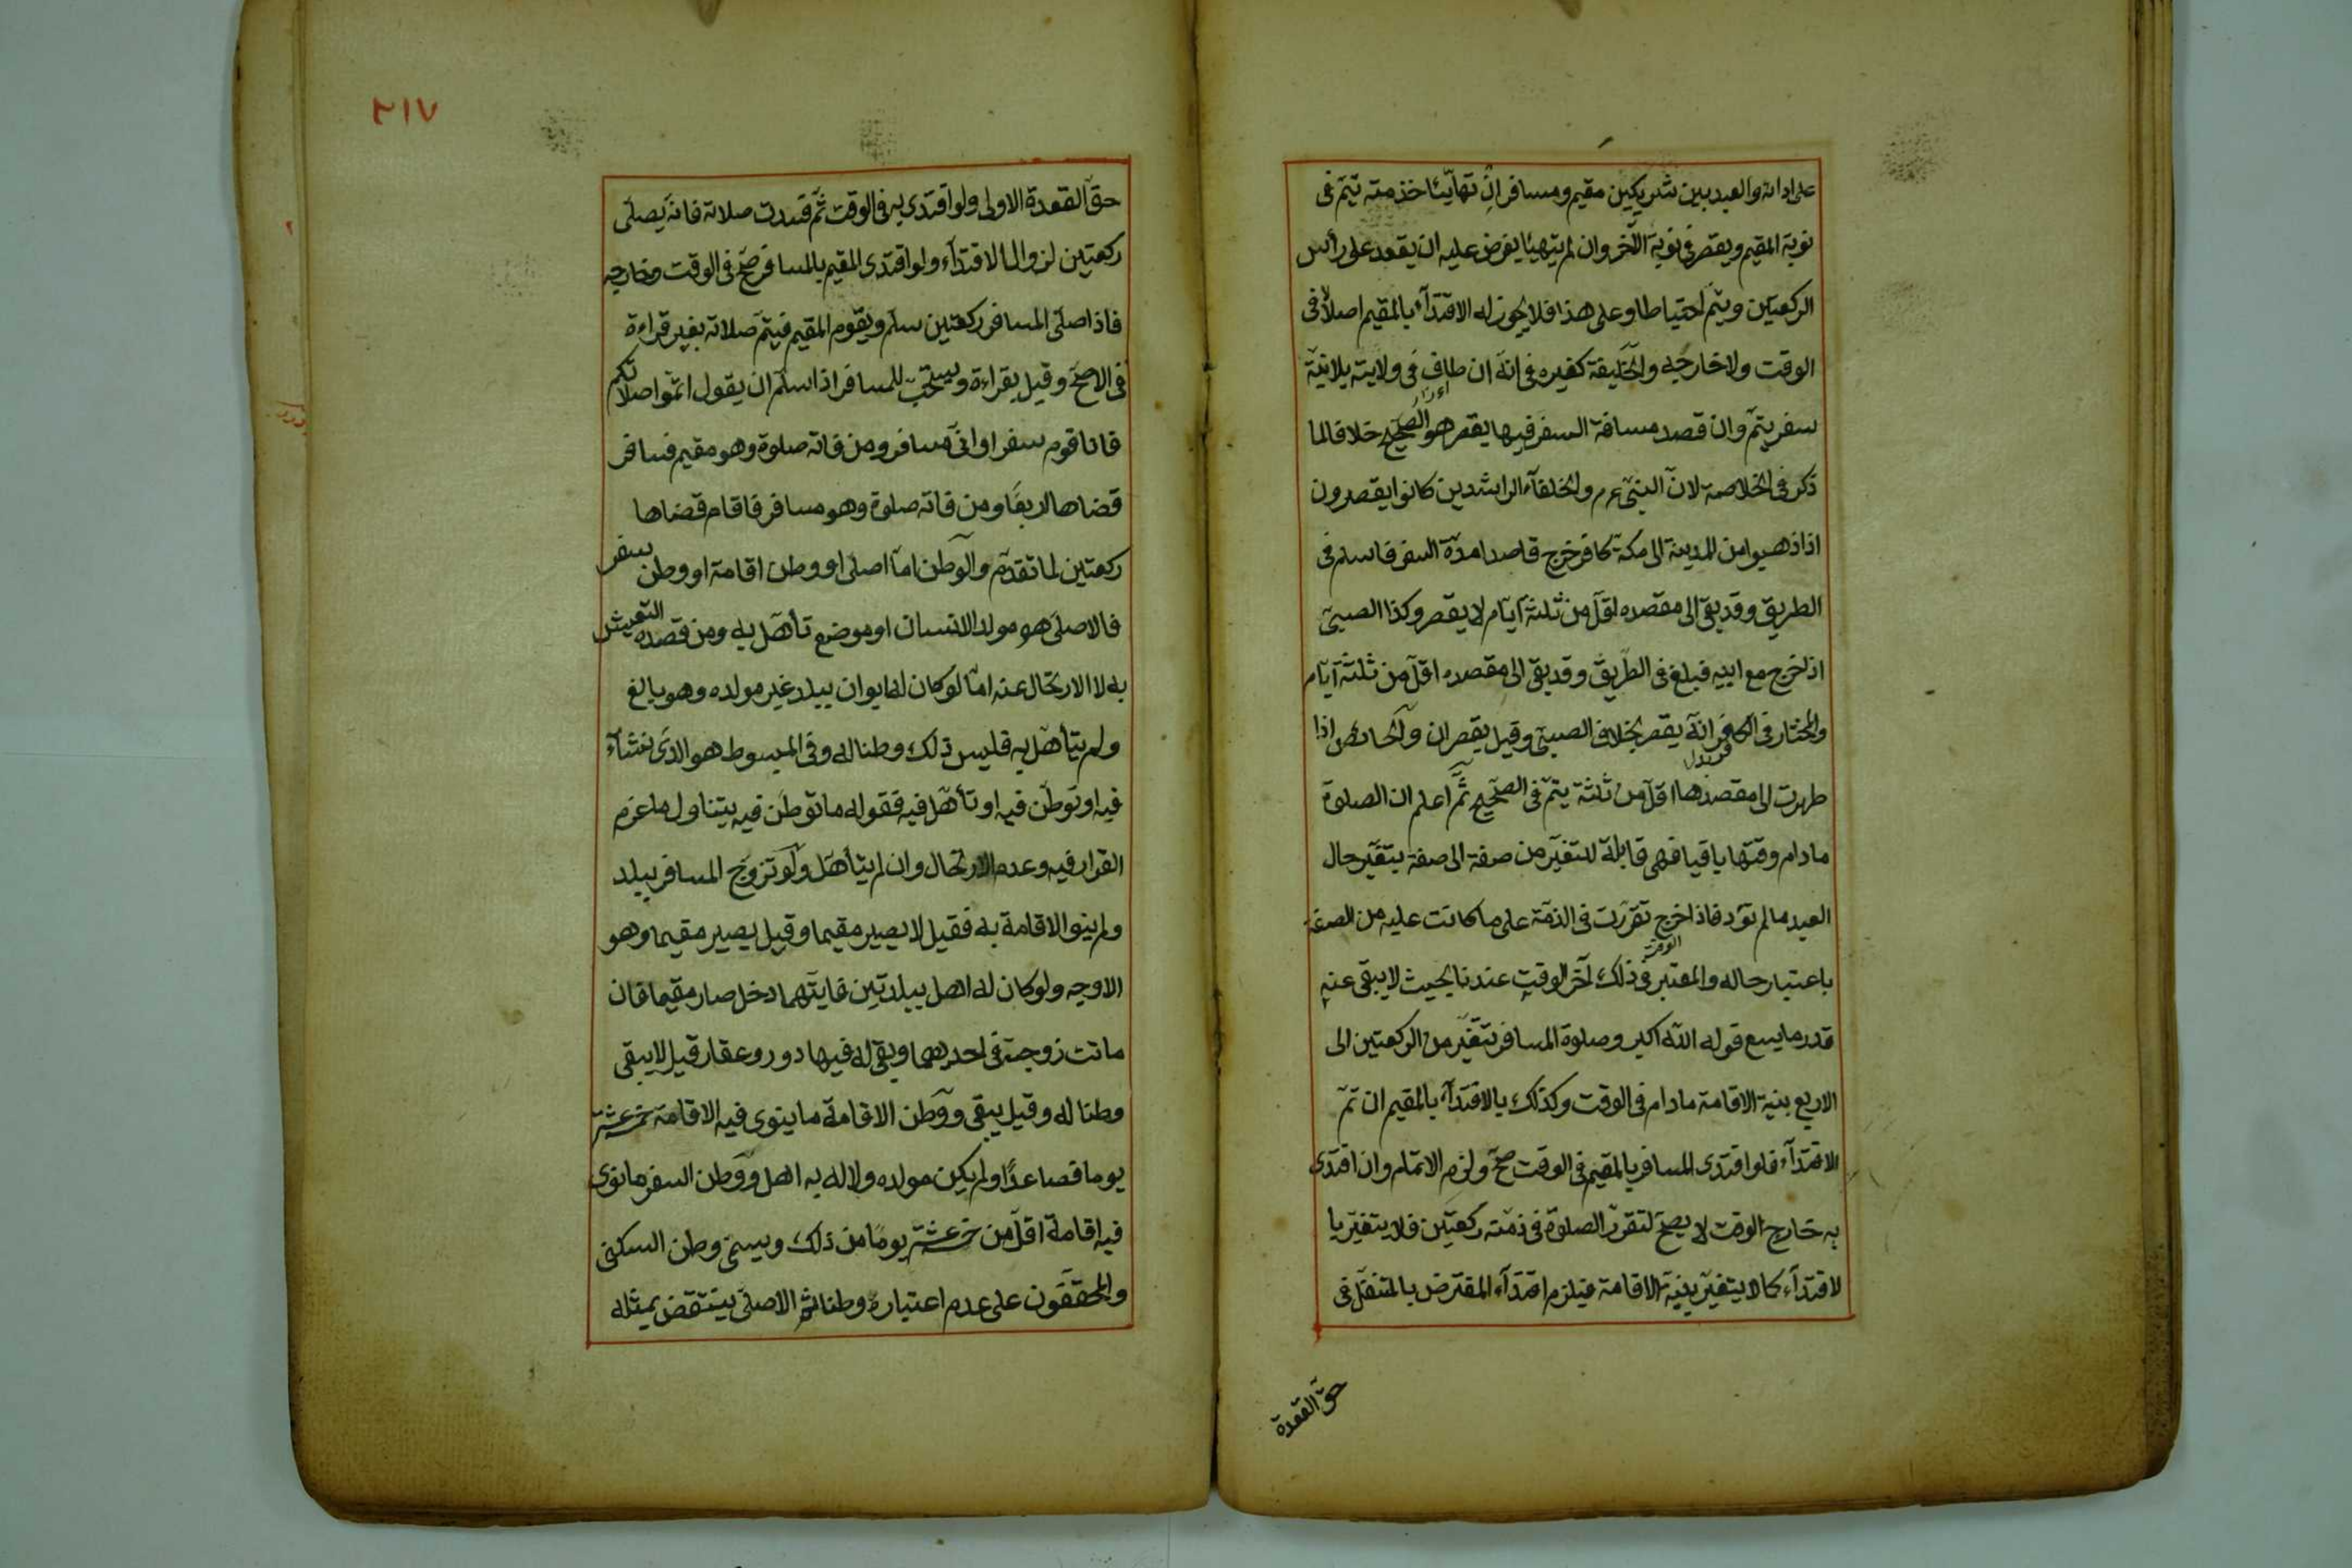 على ادائه والعبد بين شريكين مقيم ومسافر ان تهايئا خذمته يتم فى
نوبة المقيم ويقصر فى نوبة الآخر وان لم يتهيئا يفرض عليه ان يقعد على رأس
الركعتين ويتم احتياطا وعلى هذا فلا يجوز له الاقتداء بالمقيم اصلا فى
الوقت ولا خارجه والخليفة كغيره فى انه ان طاف فى ولايته بلا نية
سفر يتم وان قصد مسافة السفر فيها يقصر هو الصحيح خلافا لما
ذكر فى الخلاصة لان النبى عم والخلفاء الراشدين كانوا يقصرون
اذا ذهبوا من المدينة الى مكة كافر خرج قاصدا مدة السفر فاسلم فى
الطريق وقد بقى الى مقصده اقل من ثلثة ايام لا يقصر وكذا الصبى
اذا خرج مع ابيه فبلغ فى الطريق وقد بقى الى مقصده اقل من ثلثة ايام
والمختار فى الكافر انه يقصر بخلاف الصبى وقيل يقصران والحائض اذا
طهرت الى مقصدها اقل من ثلثة يتم فى الصحيح ثم اعلم ان الصلوة
مادام وقتها باقيا فهى قابلة للتغير من صفة الى صفة بتغير حال
العبد مالم تؤد فاذا خرج تقررت فى الذمة على ما كانت عليه من الصفة
باعتبار حاله والمعتبر فى ذلك آخر الوقت عندنا بحيث لا يبقى عنه
قدر ما يسع قوله الله اكبر وصلوة المسافر تتغير من الركعتين الى
الاربع بنية الاقامة مادام فى الوقت وكذلك بالاقتداء بالمقيم ان تم
الاقتداء فلو اقتدى المسافر بالمقيم فى الوقت صح ولزم الاتمام وان اقتدى
به خارج الوقت لا يصح لتقرر الصلوة فى ذمته ركعتين فلا يتغير با
لاقتداء كما لا يتغير بنية الاقامة فيلزم اقتداء المفترض بالمتنفل فى
حق القعدة
٢١٧
حق القعدة الاولى ولو اقتدى به فى الوقت ثم فسدت صلاته فانه يصلى
ركعتين لزوال الاقتداء ولو اقتدى المقيم بالمسافر صح فى الوقت وخارجه
فاذا صلى المسافر ركعتين سلم ويقوم المقيم فيتم صلاته بغير قراءة
فى الاصح وقيل بقراءة ويستحب للمسافر اذا سلم ان يقول اتموا صلاتكم
فانا قوم سفر او انى مسافر ومن فاته صلوة وهو مقيم فسافر
قضاها اربعا ومن فاته صلوة وهو مسافر فاقام قضاها
ركعتين لما تقدم والوطن اما اصلى او وطن اقامة او وطن سفر
فالاصلى هو مولد الانسان او موضع تأهل به ومن قصده التعيش
به لا الارتحال عنه اما لو كان له ابوان ببلد غير مولده وهو بالغ
ولم يتأهل به فليس ذلك وطنا له وفى المبسوط هو الذى نشاء
فيه او توطن فيه او تأهل فيه فقوله ما توطن فيه يتناول ما عزم
القرار فيه وعدم الارتحال وان لم يتأهل ولو تزوج المسافر ببلد
ولم ينو الاقامة به فقيل لا يصير مقيما وقيل يصير مقيما وهو
الاوجه ولو كان له اهل ببلدتين فايتهما دخل صار مقيما فان
ماتت زوجته فى احديهما وبقى له فيها دور وعقار قيل لا يبقى
وطنا له وقيل يبقى ووطن الاقامة ما ينوى فيه الاقامة خمسة عشر
يوما فصاعدا ولم يكن مولده ولا له به اهل ووطن السفر ما نوى
فيه اقامة اقل من خمسة عشر يوما من ذلك ويسمى وطن السكنى
والمحققون على عدم اعتباره وطنا ثم الاصلى ينتقض بمثله